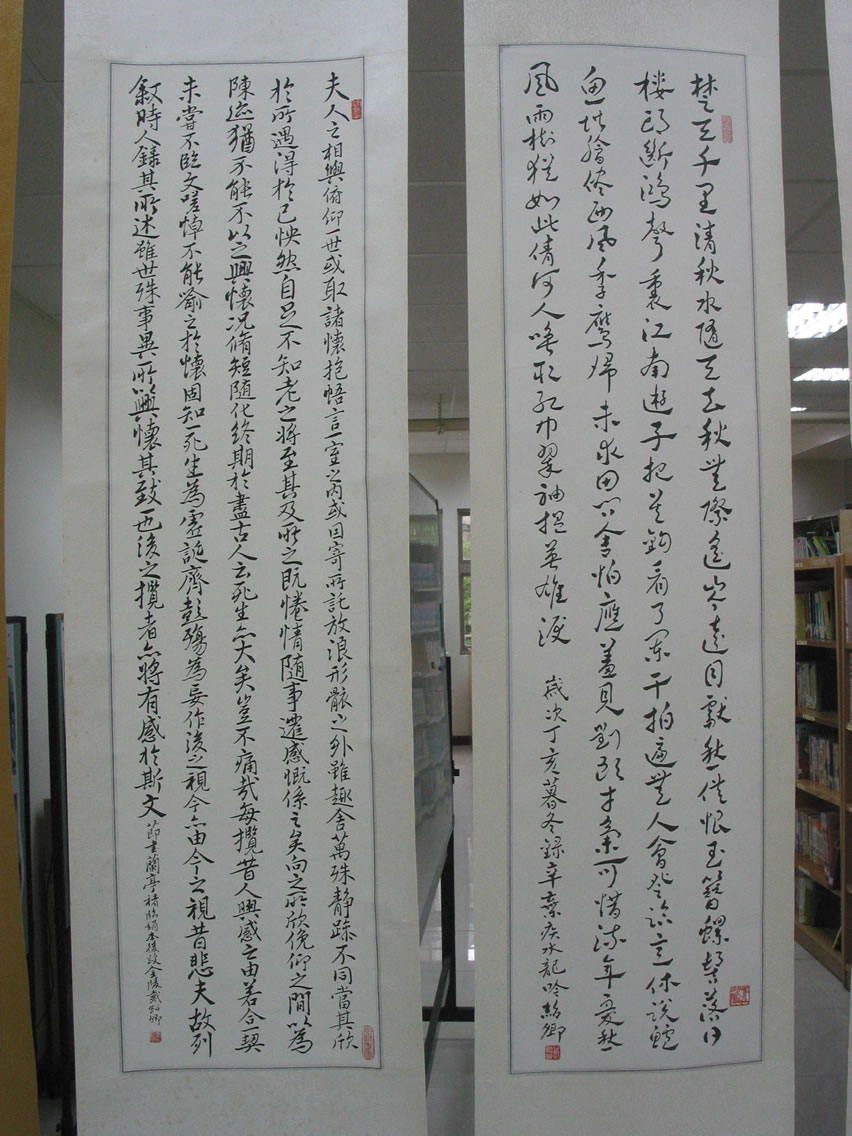 楚天千里清秋水隨天去秋無際遙岑遠目獻愁供恨玉簪螺髻落日
楼頭斷鴻聲裏江南遊子把吳鉤看了闌干拍遍無人會登臨意休說鱸
魚堪膾儘西風季鷹歸未求田問舍怕應羞見劉郎才氣可惜流年憂愁
風雨樹猶如此倩何人喚取紅巾翠袖搵英雄淚 歲次丁亥暮冬錄辛棄疾水龍吟紹卿
夫人之相與俯仰一世或取諸懷抱悟言一室之內或因寄所託放浪形骸之外雖趣舍萬殊静躁不同當其欣
於所遇得於己怏然自足不知老之將至其及所之既惓情隨事遷感慨係之矣向之所欣俛仰之間以為
陳迹猶不能不以之興懷況脩短隨化終期於盡古人云死生亦大矣豈不痛哉每攬昔人興感之由若合一契
未嘗不臨文嗟悼不能喻之於懷固知一死生為虛誕齊彭殤為妄作後之視今亦由今之視昔悲夫故列
敘時人錄其所述雖世殊事異所以興懷其致一也後之攬者亦將有感於斯文 節書蘭亭 後段金陵戴紹卿